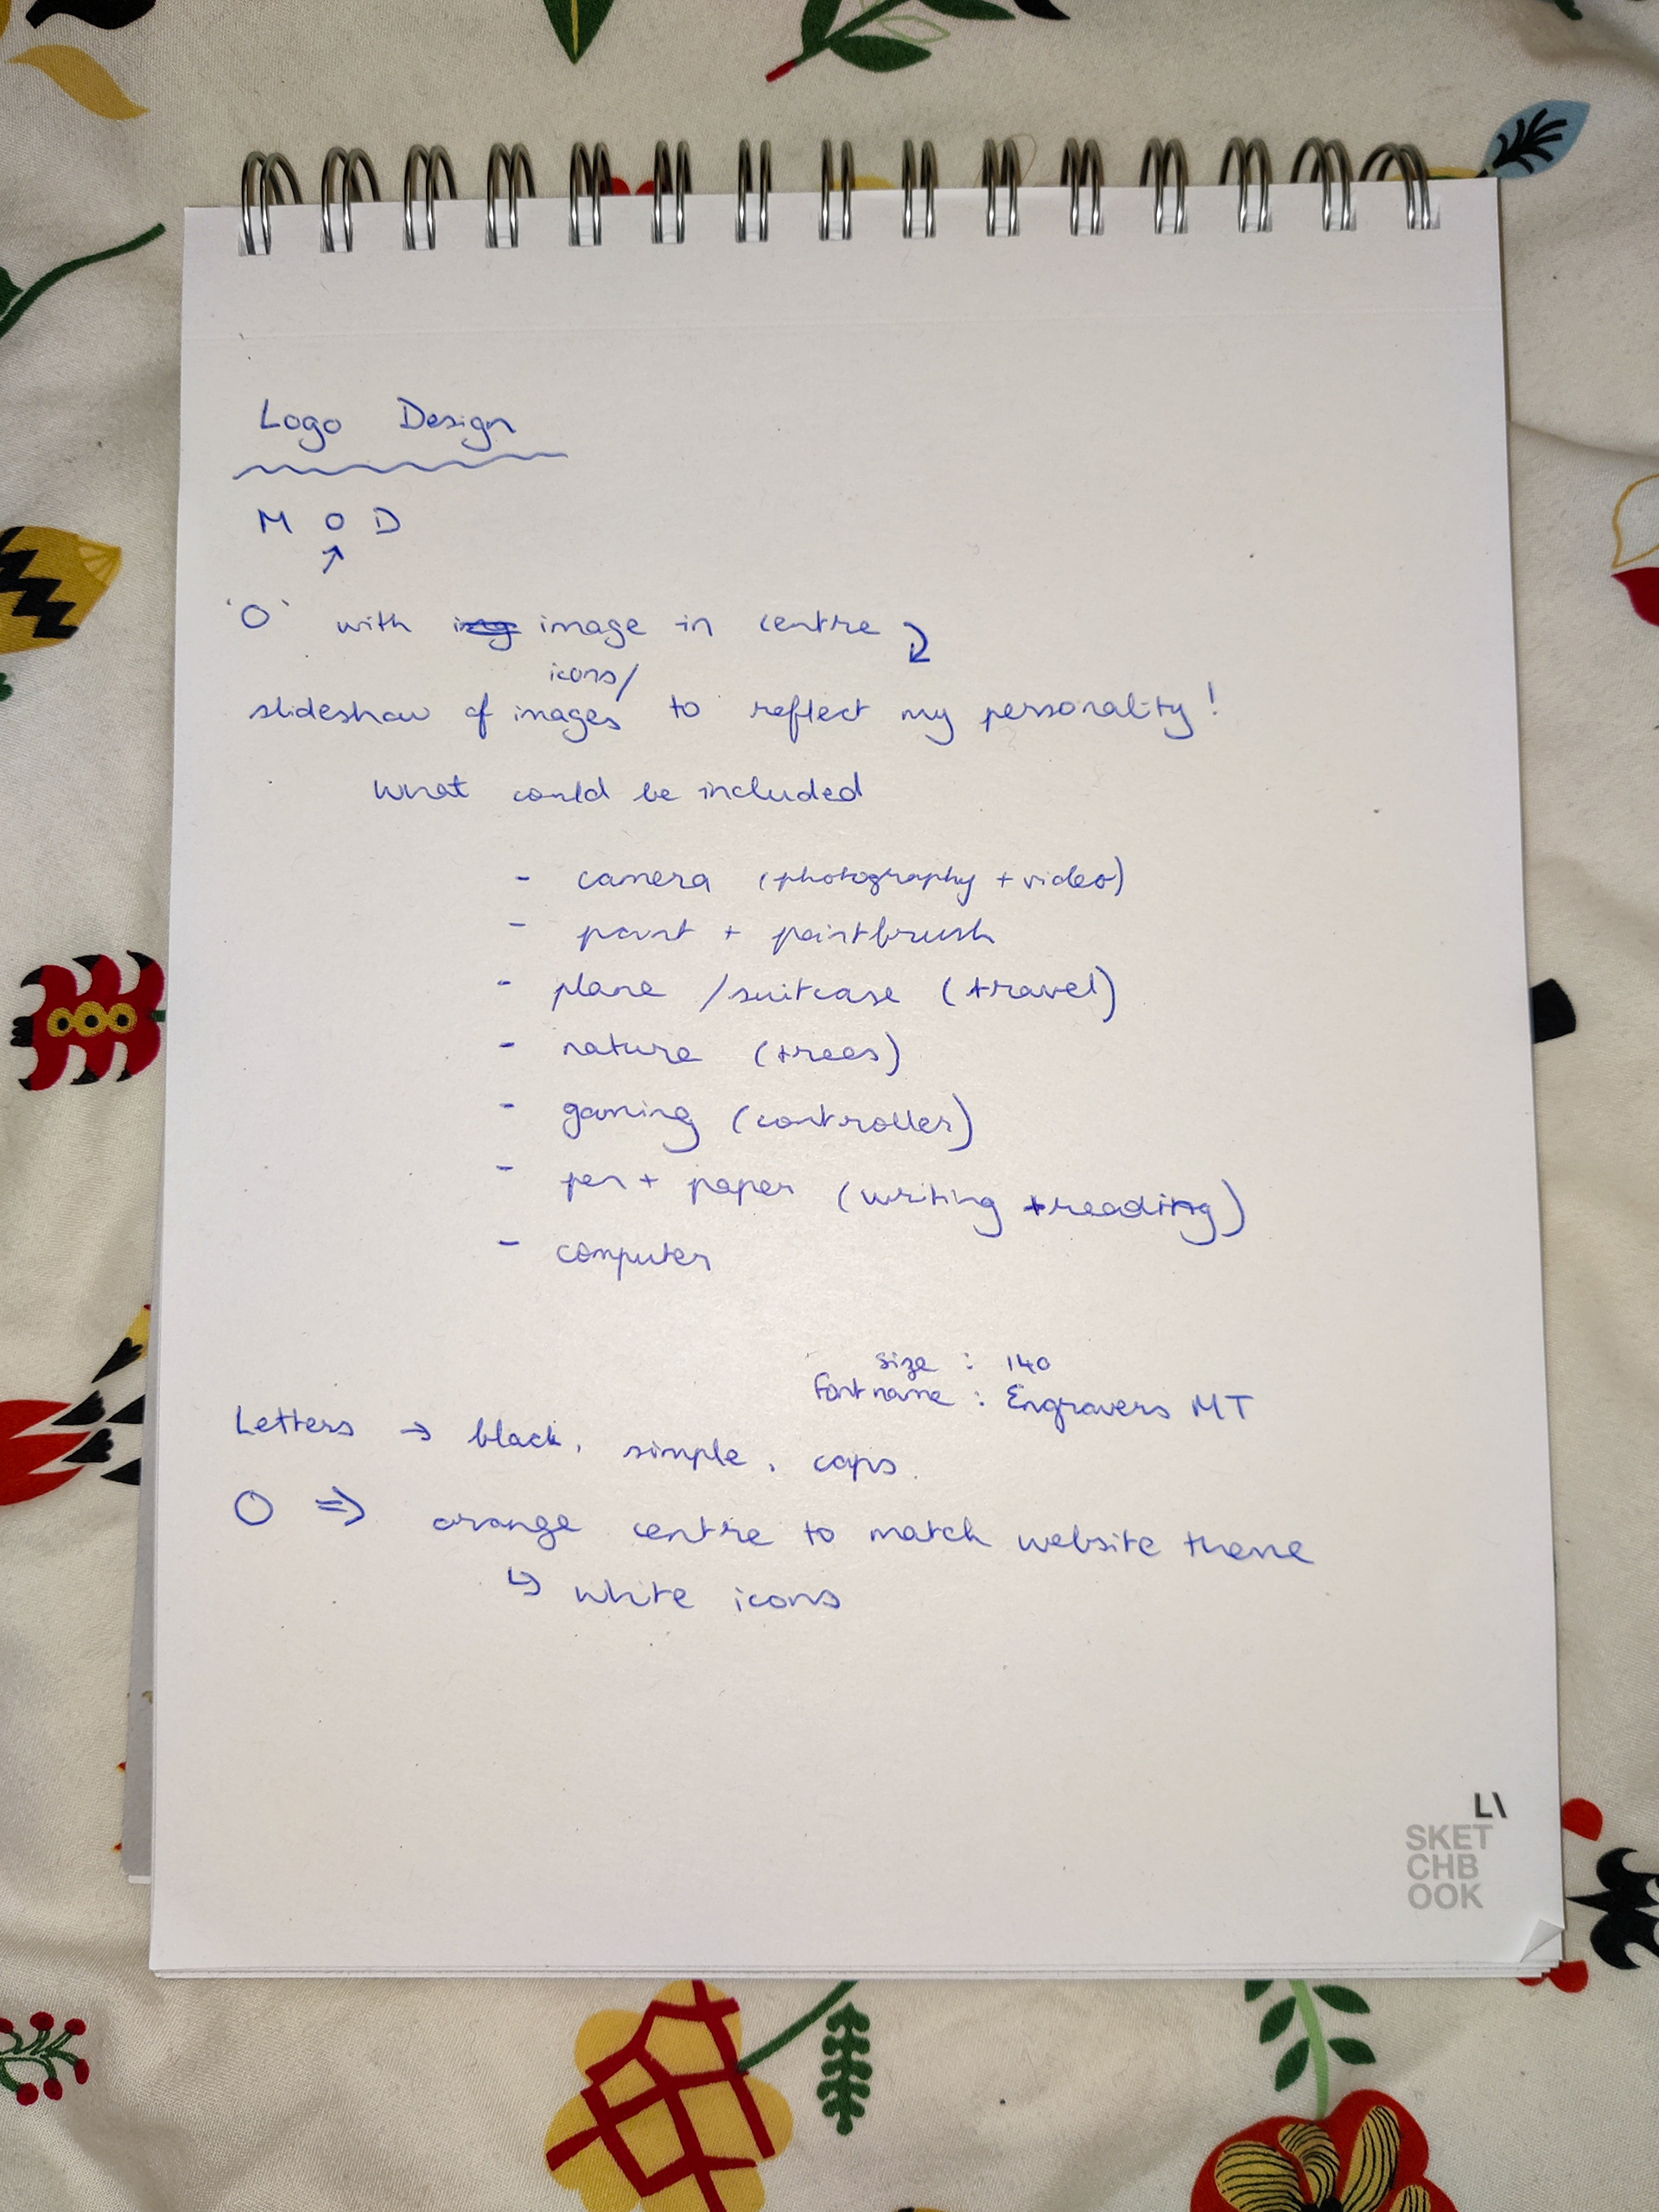 Logo Design
M O D
↗
'O' with img image in centre
icons/
slideshow of images to reflect my personality!
what could be included
- camera (photography + video)
- paint + paintbrush
- plane / suitcase (travel)
- nature (trees)
- gaming (controller)
- pen + paper (writing + reading)
- computer
size : 140
font name : Engravers MT
Letters → black, simple, caps.
O ⇒ orange centre to match website theme
↳ white icons
L\
SKET
CHB
OOK